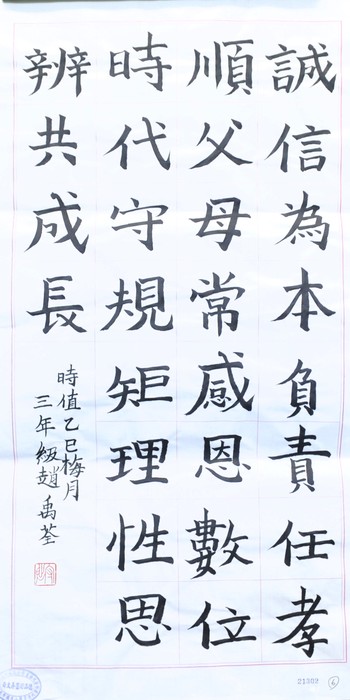 誠信為本負責任孝
順父母常感恩數位
時代守規矩理性思
辨共成長
時值乙巳梅月
三年級趙禹荃
21309
6